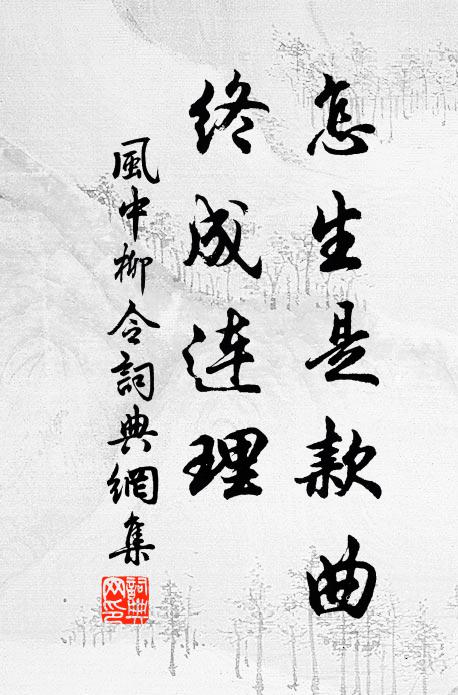 怎生是款曲
终成连理
風中柳令詞典網集
詞典
网印